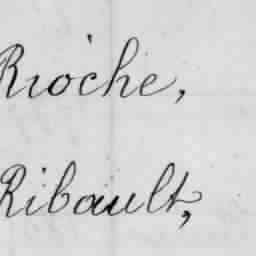 Rioche,
Ribault,